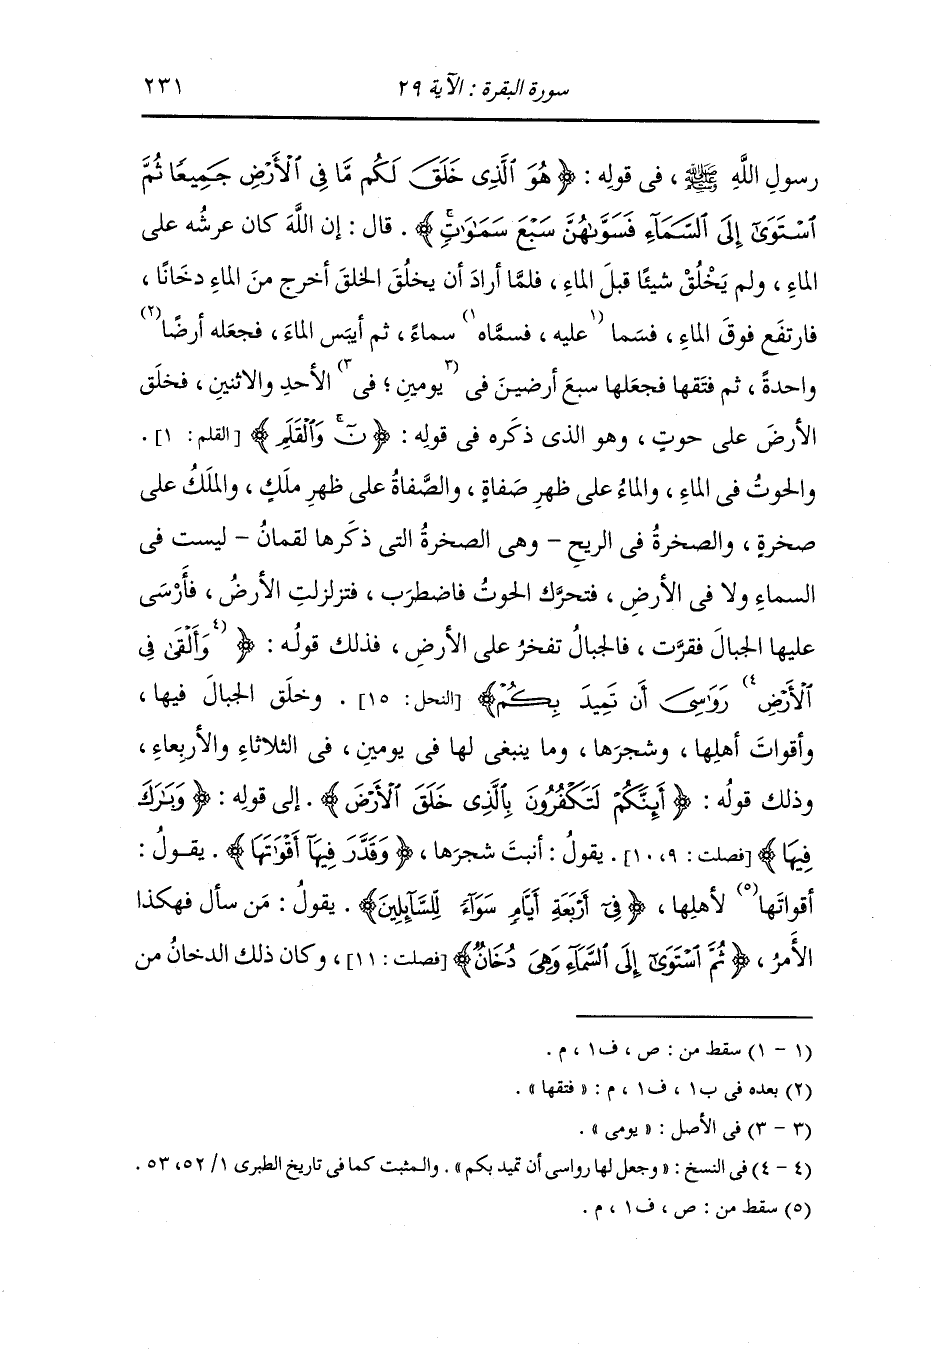 سورة البقرة : الآية ٢٩ ٢٣١
رسولِ اللَّهِ ﷺ ، فى قولِه : ﴿ هُوَ ٱلَّذِى خَلَقَ لَكُم مَّا فِى ٱلْأَرْضِ جَمِيعًا ثُمَّ
ٱسْتَوَىٰٓ إِلَى ٱلسَّمَآءِ فَسَوَّىٰهُنَّ سَبْعَ سَمَٰوَٰتٍۚ ﴾ . قال : إن اللَّهَ كان عرشُه على
الماءِ ، ولم يَخْلُقْ شيئًا قبلَ الماءِ ، فلمَّا أرادَ أن يخلُقَ الخلقَ أخرج منَ الماءِ دخَانًا ،
فارتفَع فوقَ الماءِ ، فسَما (١عليه ، فسمَّاه١) سماءً ، ثم أيبَس الماءَ ، فجعَله أرضًا(٢)
واحدةً ، ثم فتَقها فجعَلها سبعَ أرضينَ فى (٣يومينِ ؛ فى٣) الأحدِ والاثنينِ ، فخلَق
الأرضَ على حوتٍ ، وهو الذى ذكَره فى قولِه : ﴿ نٓۚ وَٱلْقَلَمِ ﴾ [القلم : ١] .
والحوتُ فى الماءِ ، والماءُ على ظهرِ صَفاةٍ ، والصَّفاةُ على ظهرِ ملَكٍ ، والملَكُ على
صخرةٍ ، والصخرةُ فى الريحِ – وهى الصخرةُ التى ذكَرها لقمانُ – ليست فى
السماءِ ولا فى الأرضِ ، فتحرَّك الحوتُ فاضطرَب ، فتزلزلتِ الأرضُ ، فأَرْسَى
عليها الجبالَ فقرَّت ، فالجبالُ تفخرُ على الأرضِ ، فذلك قولُه : ﴿ (٤وَأَلْقَىٰ فِى
ٱلْأَرْضِ٤) رَوَٰسِىَ أَن تَمِيدَ بِكُمْ﴾ [النحل : ١٥] . وخلَق الجبالَ فيها ،
وأقواتَ أهلِها ، وشجرَها ، وما ينبغى لها فى يومينِ ، فى الثلاثاءِ والأربِعاءِ ،
وذلك قولُه : ﴿ أَئِنَّكُمْ لَتَكْفُرُونَ بِٱلَّذِى خَلَقَ ٱلْأَرْضَ ﴾ . إلى قولِه : ﴿ وَبَٰرَكَ
فِيهَا ﴾ [فصلت : ٩، ١٠] . يقولُ : أنبتَ شجرَها ، ﴿ وَقَدَّرَ فِيهَآ أَقْوَٰتَهَا ﴾ . يقـولُ :
أقواتَها(٥) لأهلِها ، ﴿ فِىٓ أَرْبَعَةِ أَيَّامٍ سَوَآءً لِّلسَّآئِلِينَ﴾ . يقولُ : مَن سأل فهكذا
الأَمرُ ، ﴿ ثُمَّ ٱسْتَوَىٰٓ إِلَى ٱلسَّمَآءِ وَهِىَ دُخَانٌ﴾ [فصلت : ١١] ، وكان ذلك الدخانُ من
(١ – ١) سقط من : ص ، ف١ ، م .
(٢) بعده فى ب١ ، ف١ ، م : « فتقها » .
(٣ – ٣) فى الأصل : « يومى » .
(٤ – ٤) فى النسخ : « وجعل لها رواسى أن تميد بكم » . والمثبت كما فى تاريخ الطبرى ١/ ٥٢، ٥٣ .
(٥) سقط من : ص ، ف١ ، م .